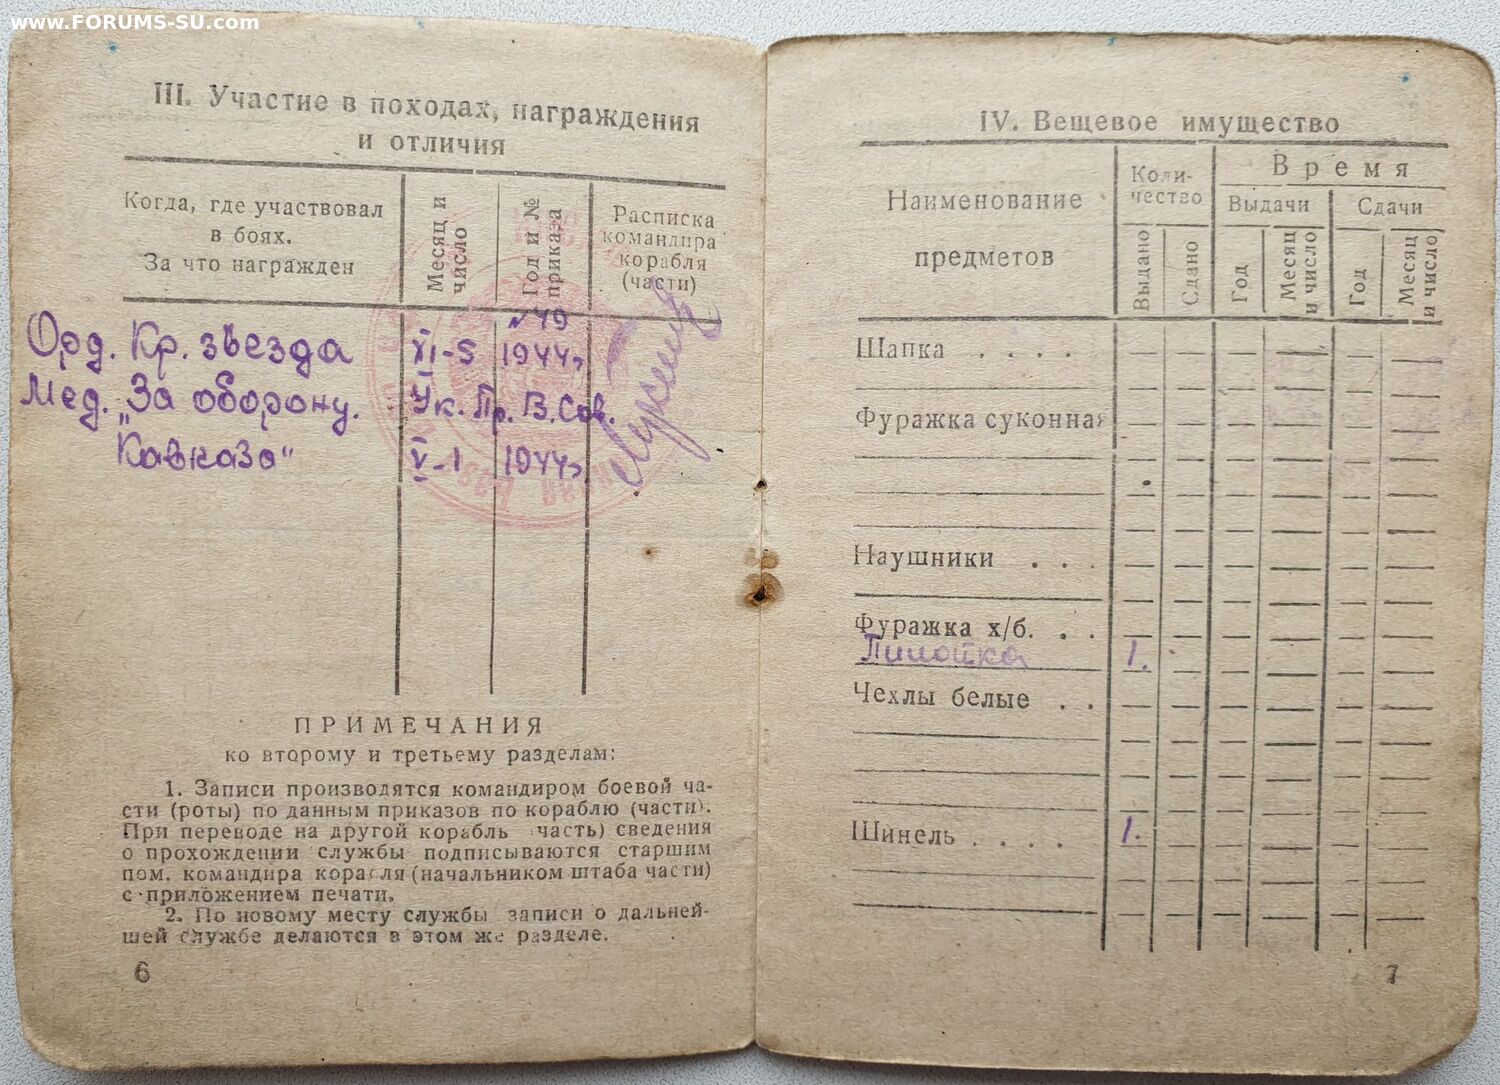 www.FORUMS-SU.com
III. Участие в походах, награждения
и отличия
Когда, где участвовал
в боях.
За что награжден
Месяц и
число
Год и №
приказа
Расписка
командира
корабля
(части)
№ 49
Орд. Кр. звезда XI-5 1944г.
Мед. "За оборону. Ук. Пр. В. Сов.
Кавказа" V-1 1944г.
ПРИМЕЧАНИЯ
ко второму и третьему разделам:
1. Записи производятся командиром боевой ча-
сти (роты) по данным приказов по кораблю (части).
При переводе на другой корабль (часть) сведения
о прохождении службы подписываются старшим
пом. командира корабля (начальником штаба части)
с приложением печати.
2. По новому месту службы записи о дальней-
шей службе делаются в этом же разделе.
6
IV. Вещевое имущество
Наименование
предметов
Коли-
чество
Время
Выдачи
Сдачи
Выдано
Сдано
Год
Месяц
и число
Год
Месяц
и число
Шапка . . . .
Фуражка суконная
Наушники . . .
Фуражка х/б. . .
Пилотка 1.
Чехлы белые . .
Шинель . . . . 1.
7